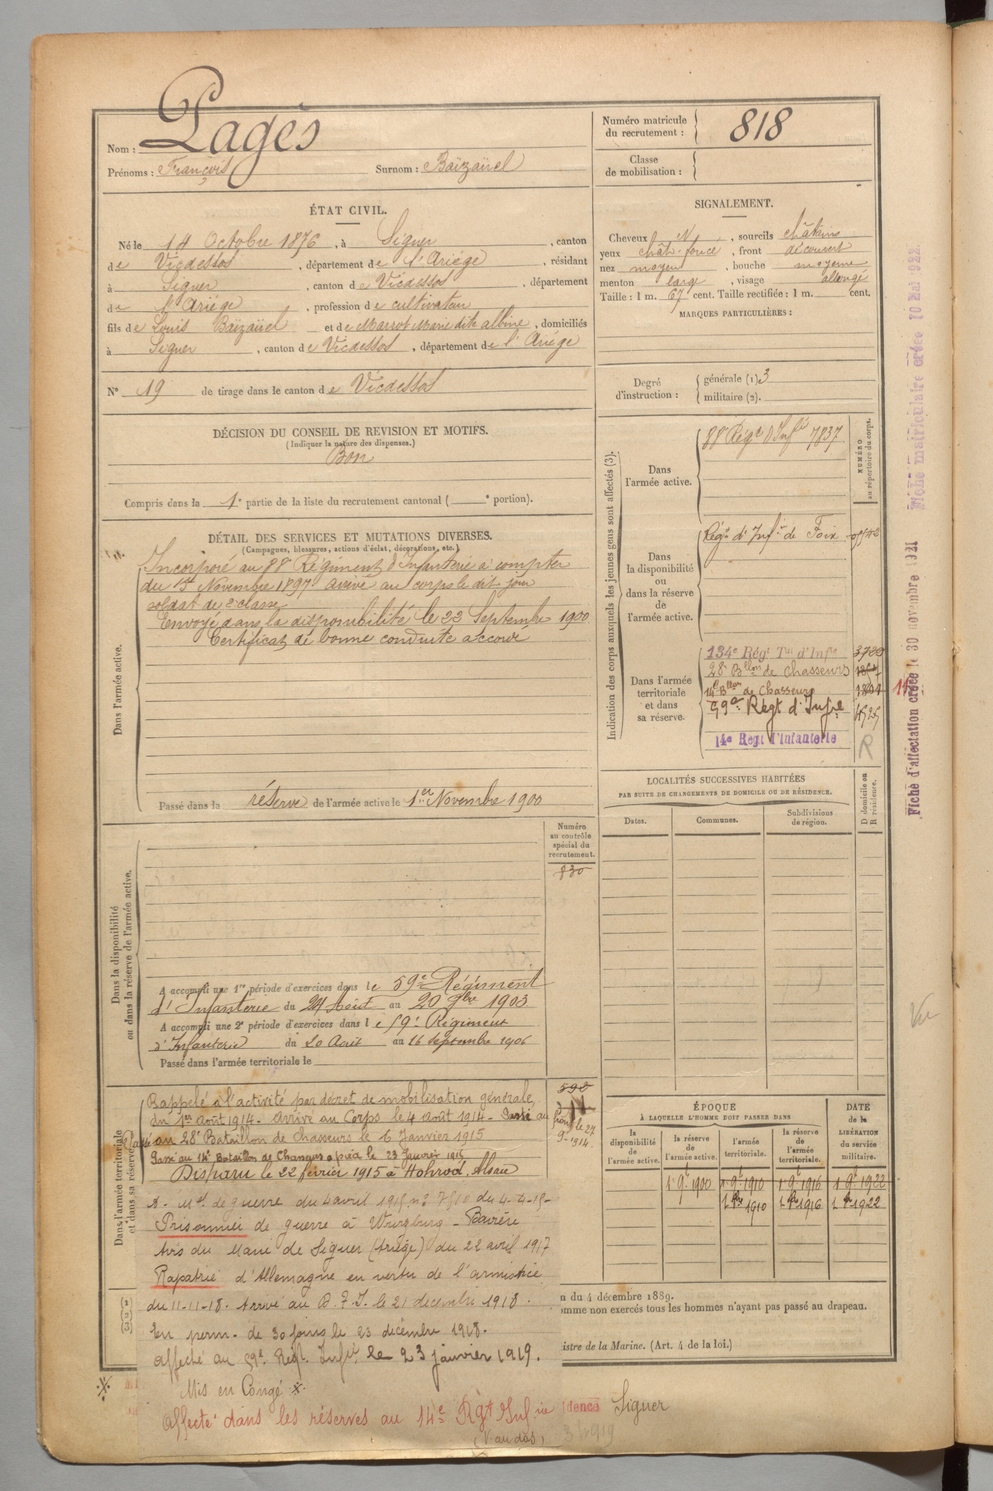 Nom : Pagès
Prénoms : François Surnom : Baïzaüel
Numéro matricule du recrutement : 818
Classe de mobilisation :
ÉTAT CIVIL.
Né le 14 Octobre 1876, à Siguer, canton
de Vicdessos, département de l'Ariège, résidant
à Siguer, canton de Vicdessos, département
de l'Ariège, profession de cultivateur
fils de Louis Baïzaüel et de Marrot Marie dite Albine, domiciliés
à Siguer, canton de Vicdessos, département de l'Ariège
N° 19 de tirage dans le canton de Vicdessos
SIGNALEMENT.
Cheveux N, sourcils châtains
yeux chât. foncé, front découvert
nez moyen, bouche moyenne
menton large, visage allongé
Taille : 1 m. 67 cent. Taille rectifiée : 1 m. cent.
MARQUES PARTICULIÈRES :
Degré d'instruction : générale (1) 3
militaire (2).
DÉCISION DU CONSEIL DE REVISION ET MOTIFS.
(Indiquer la nature des dispenses.)
Bon
Compris dans la 1e partie de la liste du recrutement cantonal ( e portion).
DÉTAIL DES SERVICES ET MUTATIONS DIVERSES.
(Campagnes, blessures, actions d'éclat, décorations, etc.)
Dans l'armée active.
Incorporé au 88 Régiment d'Infanterie à compter
du 15 Novembre 1897 arrivé au corps le dit jour
soldat de 2e classe
Envoyé dans la disponibilité le 22 Septembre 1900
Certificat de bonne conduite accordé
Passé dans la réserve de l'armée active le 1er Novembre 1900
Indication des corps auxquels les jeunes gens sont affectés (3).
NUMÉRO au répertoire du corps.
Dans l'armée active.
88 Régt d'Inftie 7837
Dans la disponibilité ou dans la réserve de l'armée active.
Régt d'Inftie de Foix
Dans l'armée territoriale et dans sa réserve.
134e Régt Tal d'Infie 3700
28 Bllon de Chasseurs
14e Bllon de Chasseurs
59e Régt d'Infie
14e Régt d'Infanterie
R
LOCALITÉS SUCCESSIVES HABITÉES
PAR SUITE DE CHANGEMENTS DE DOMICILE OU DE RÉSIDENCE.
Dates. Communes. Subdivisions de région. D domicile ou R résidence.
Numéro au contrôle spécial du recrutement.
830
Dans la disponibilité ou dans la réserve de l'armée active.
A accompli une 1re période d'exercices dans le 59e Régiment
d'Infanterie du 24 Août au 20 7bre 1903
A accompli une 2e période d'exercices dans le 59e Régiment
d'Infanterie du 20 Août au 16 Septembre 1906
Passé dans l'armée territoriale le
Dans l'armée territoriale et dans sa réserve.
Rappelé à l'activité par décret de mobilisation générale
du 1er août 1914. Arrivé au Corps le 4 août 1914. Passé au
au 28e Bataillon de Chasseurs le 6 Janvier 1915
Passé au 14e Bataillon de Chasseurs à pied le 23 Janvier 1915
Disparu le 22 février 1915 à Hohrod Alsace
Prisonnier de guerre à Wurzburg - Bavière
Avis du Maire de Siguer (Ariège) du 22 avril 1917
Rapatrié d'Allemagne en vertu de l'armistice
du 11-11-18. Arrivé au B.F.I. le 21 décembre 1918.
En perm. de 30 jours le 23 décembre 1918.
affecté au 59e Régt Infie le 23 janvier 1919.
Mis en Congé
Affecté dans les réserves au 14e Rgt Infie
Siguer
(V. au dos)
ÉPOQUE
À LAQUELLE L'HOMME DOIT PASSER DANS
la disponibilité de l'armée active. la réserve de l'armée active. l'armée territoriale. la réserve de l'armée territoriale.
DATE de la LIBÉRATION du service militaire.
1 9e 1900 1 9e 1910 1 9e 1916 1 9e 1922
1 8bre 1910 1 8bre 1916 1 8bre 1922
n du 4 décembre 1889.
omme non exercés tous les hommes n'ayant pas passé au drapeau.
istre de la Marine. (Art. 4 de la loi.)
(1) (2) (3)
Fiche d'affectation créée le 30 novembre 1921
Fiche matriculaire créée 10 Mai 1922
Vu